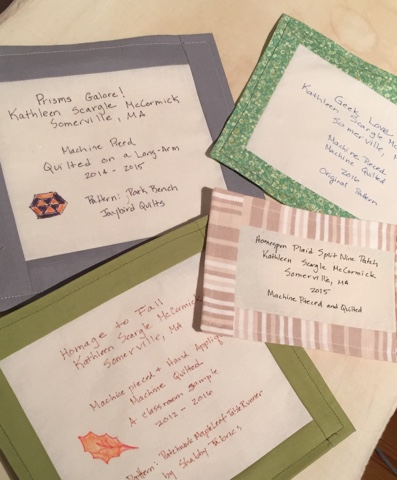 Prisms Galore!
Kathleen Scargle McCormick
Somerville, MA
Machine Pieced
Quilted on a Long-Arm
2014 - 2015
Pattern: Park Bench
Jaybird Quilts
Geek Love
Kathleen Scargle
Somerville,
Machine Pieced
Machine Quilted
2016
Original Pattern
Homespun Plaid Split Nine Patch
Kathleen Scargle McCormick
Somerville, MA
2015
Machine Pieced and Quilted
Homage to Fall
Kathleen Scargle McCormick
Somerville, MA
Machine pieced + Hand
Machine Quilted
A classroom sample
2012 - 2016
Pattern: Patchwork Maple Leaf Table Runner
by Shabby Fabrics